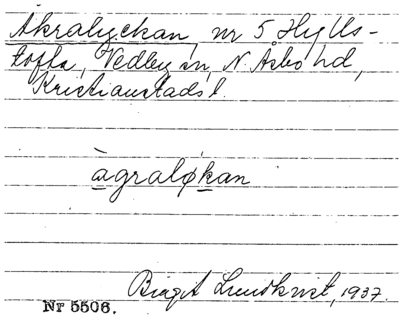 Åkralyckan, nr 5 Hylls-
tofta, Vedby sn, N. Åsbo hd,
Kristianstads l.
àgraløkan
Birgit Lundkvist, 1937.
Nr 5506.